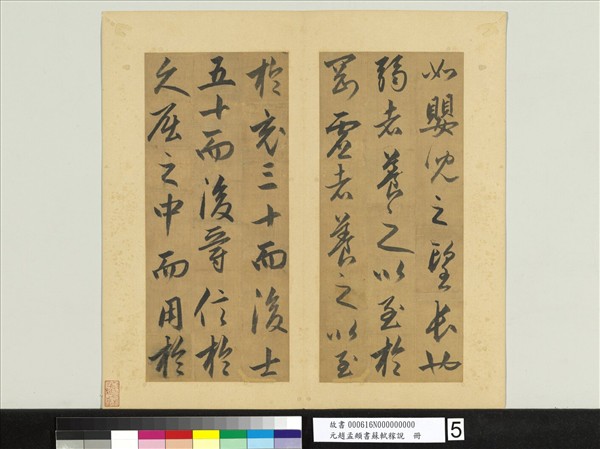 如嬰兒之望長也
弱者養之以至於
剛虛者養之以至
於充三十而後士
五十而後爵信於
久屈之中而用於
故書 000616N000000000
元趙孟頫書蘇軾稼說 冊
5